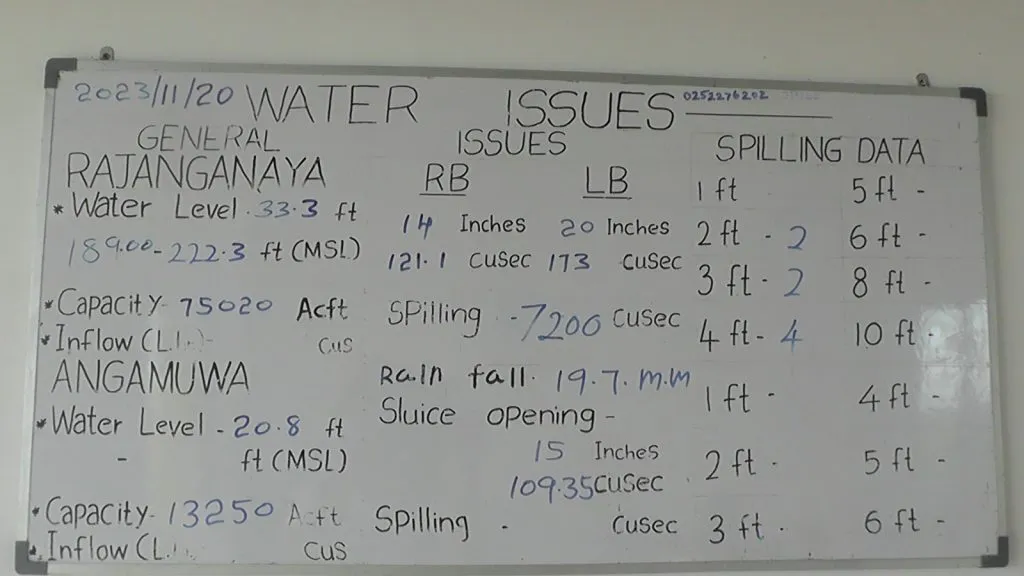 2023/11/20 WATER ISSUES 0252276202
GENERAL ISSUES SPILLING DATA
RAJANGANAYA RB LB 1 ft 5 ft -
* Water Level . 33.3 ft 14 Inches 20 Inches 2 ft - 2 6 ft -
189.00 - 222.3 ft (MSL) 121.1 cusec 173 cusec 3 ft - 2 8 ft -
* Capacity - 75020 Acft SPilling - 7200 cusec 4 ft - 4 10 ft -
* Inflow cus
ANGAMUWA Rain fall . 19.7. m.m 1 ft - 4 ft -
* Water Level - 20.8 ft Sluice opening -
- ft (MSL) 15 Inches 2 ft - 5 ft -
109.35 cusec
* Capacity - 13250 Acft SPilling - cusec 3 ft - 6 ft -
* Inflow cus